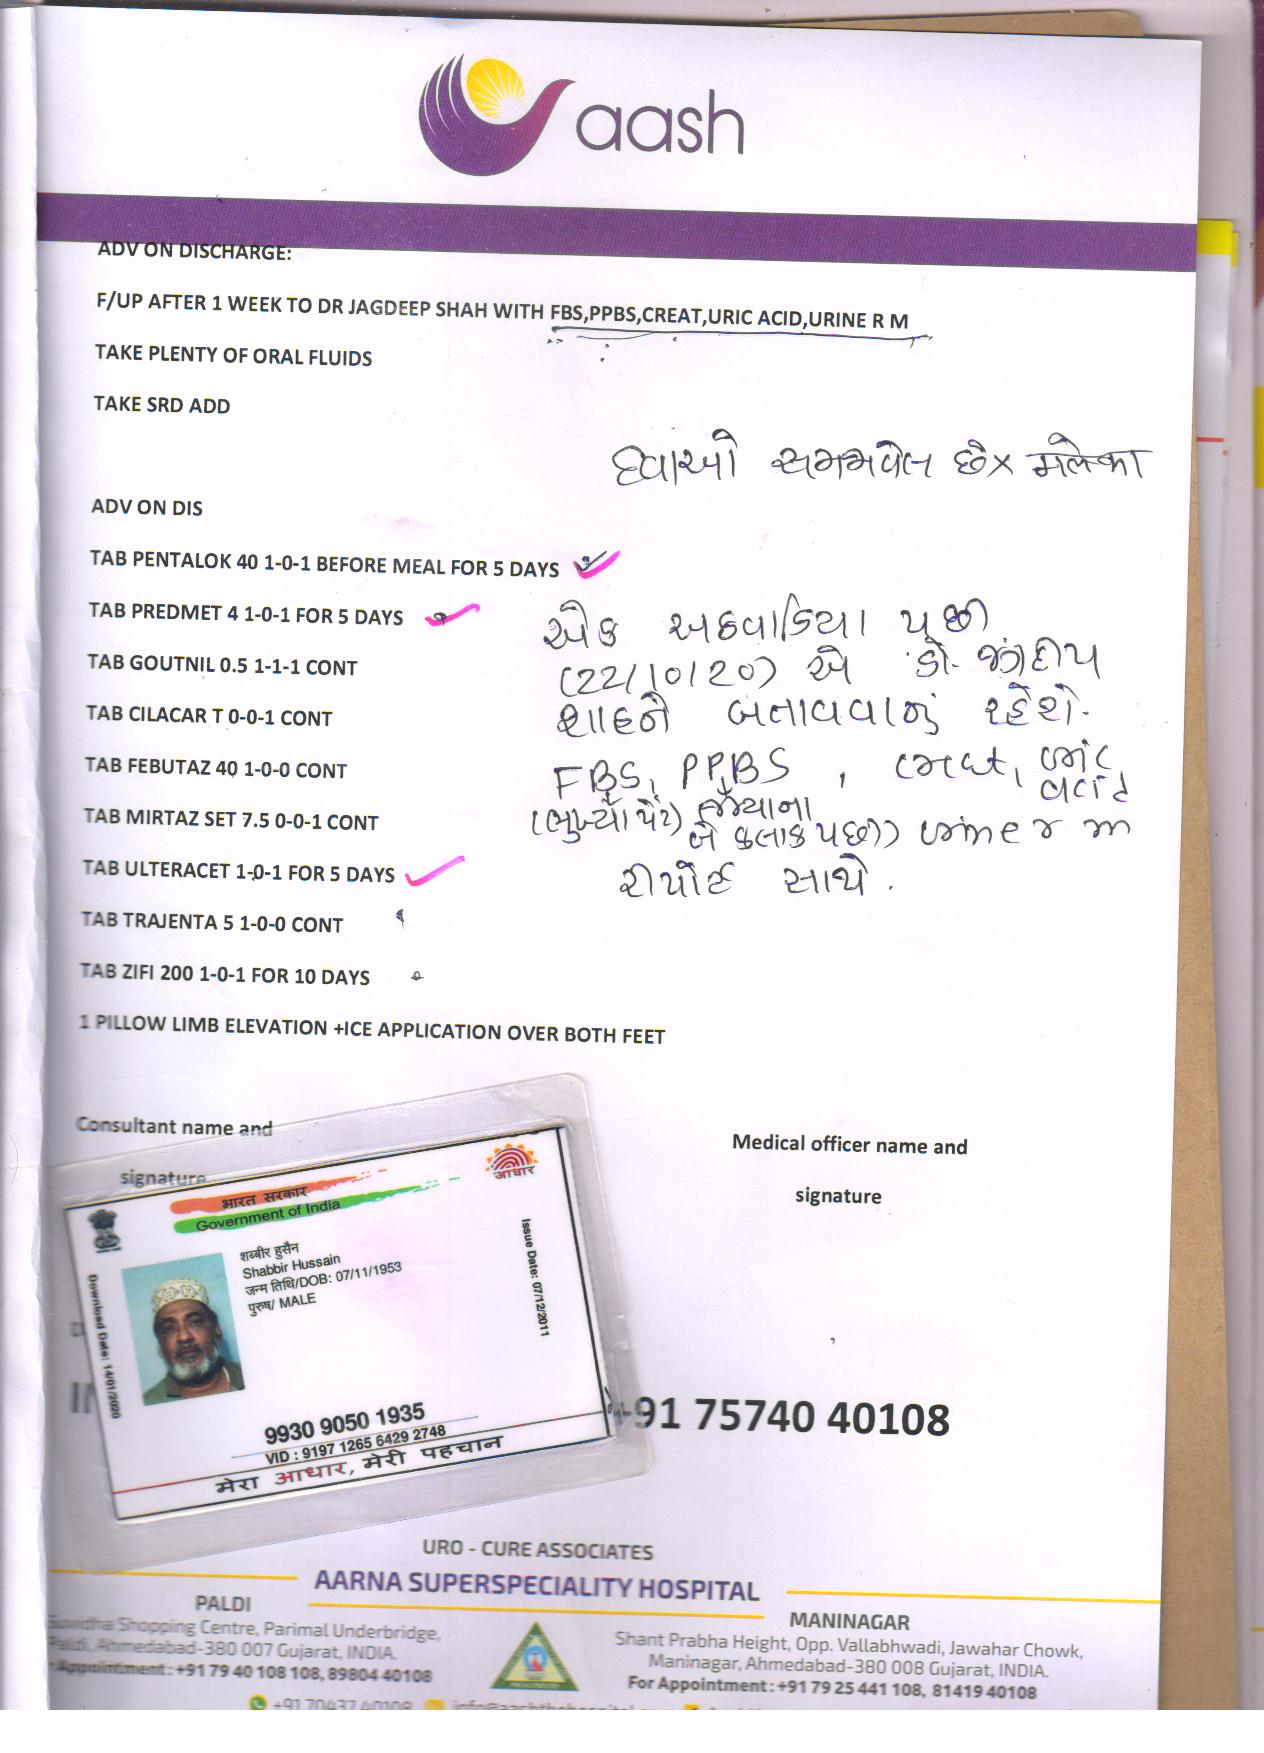 aash
ADV ON DISCHARGE:
F/UP AFTER 1 WEEK TO DR JAGDEEP SHAH WITH FBS,PPBS,CREAT,URIC ACID,URINE R M
TAKE PLENTY OF ORAL FLUIDS
TAKE SRD ADD
દવાઓ સમજાવેલ છે
ADV ON DIS
TAB PENTALOK 40 1-0-1 BEFORE MEAL FOR 5 DAYS
TAB PREDMET 4 1-0-1 FOR 5 DAYS
એક અઠવાડિયા પછી
TAB GOUTNIL 0.5 1-1-1 CONT
(22/10/20) એ ડૉ. જગદીપ
TAB CILACAR T 0-0-1 CONT
શાહને બતાવવાનું રહેશે.
TAB FEBUTAZ 40 1-0-0 CONT
FBS, PPBS,
TAB MIRTAZ SET 7.5 0-0-1 CONT
(ભુખ્યા પેટે)
બે કલાક પછી) urine r m
TAB ULTERACET 1-0-1 FOR 5 DAYS
રીપોર્ટ સાથે.
TAB TRAJENTA 5 1-0-0 CONT
TAB ZIFI 200 1-0-1 FOR 10 DAYS
1 PILLOW LIMB ELEVATION +ICE APPLICATION OVER BOTH FEET
Consultant name and
signature
Medical officer name and
signature
भारत सरकार
Government of India
आधार
शब्बीर हुसैन
Shabbir Hussain
जन्म तिथि/DOB: 07/11/1953
पुरुष/ MALE
Download Date: 14/01/2020
Issue Date: 07/12/2011
9930 9050 1935
VID : 9197 1265 6429 2748
मेरा आधार, मेरी पहचान
+91 75740 40108
URO - CURE ASSOCIATES
AARNA SUPERSPECIALITY HOSPITAL
PALDI
Suvidha Shopping Centre, Parimal Underbridge,
Paldi, Ahmedabad-380 007 Gujarat, INDIA.
Appointment : +91 79 40 108 108, 89804 40108
MANINAGAR
Shant Prabha Height, Opp. Vallabhwadi, Jawahar Chowk,
Maninagar, Ahmedabad-380 008 Gujarat, INDIA.
For Appointment : +91 79 25 441 108, 81419 40108
+91 70437 40108